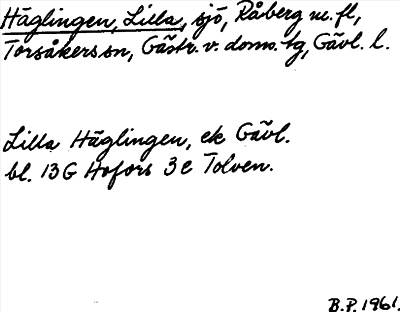 Häglingen, Lilla, sjö, Råberg m.fl,
Torsåkers sn, Gästr. v. doms. tg, Gävl. l.
Lilla Häglingen, ek Gävl.
bl. 13G Hofors 3e Tolven.
B.P. 1961.